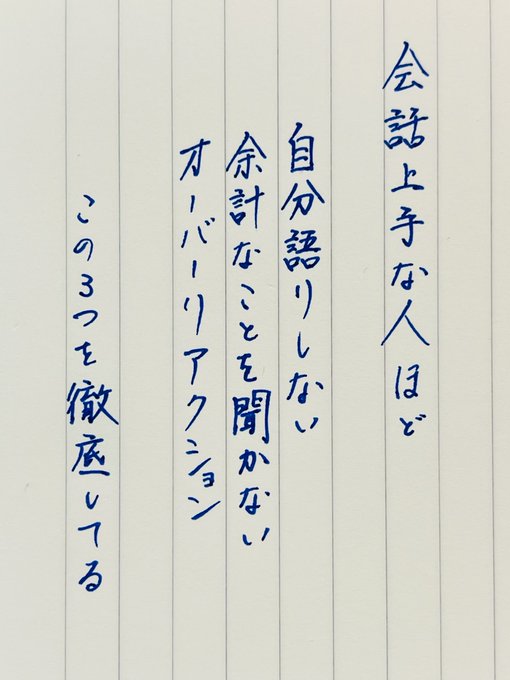 会話上手な人ほど
自分語りしない
余計なことを聞かない
オーバーリアクション
この3つを徹底してる